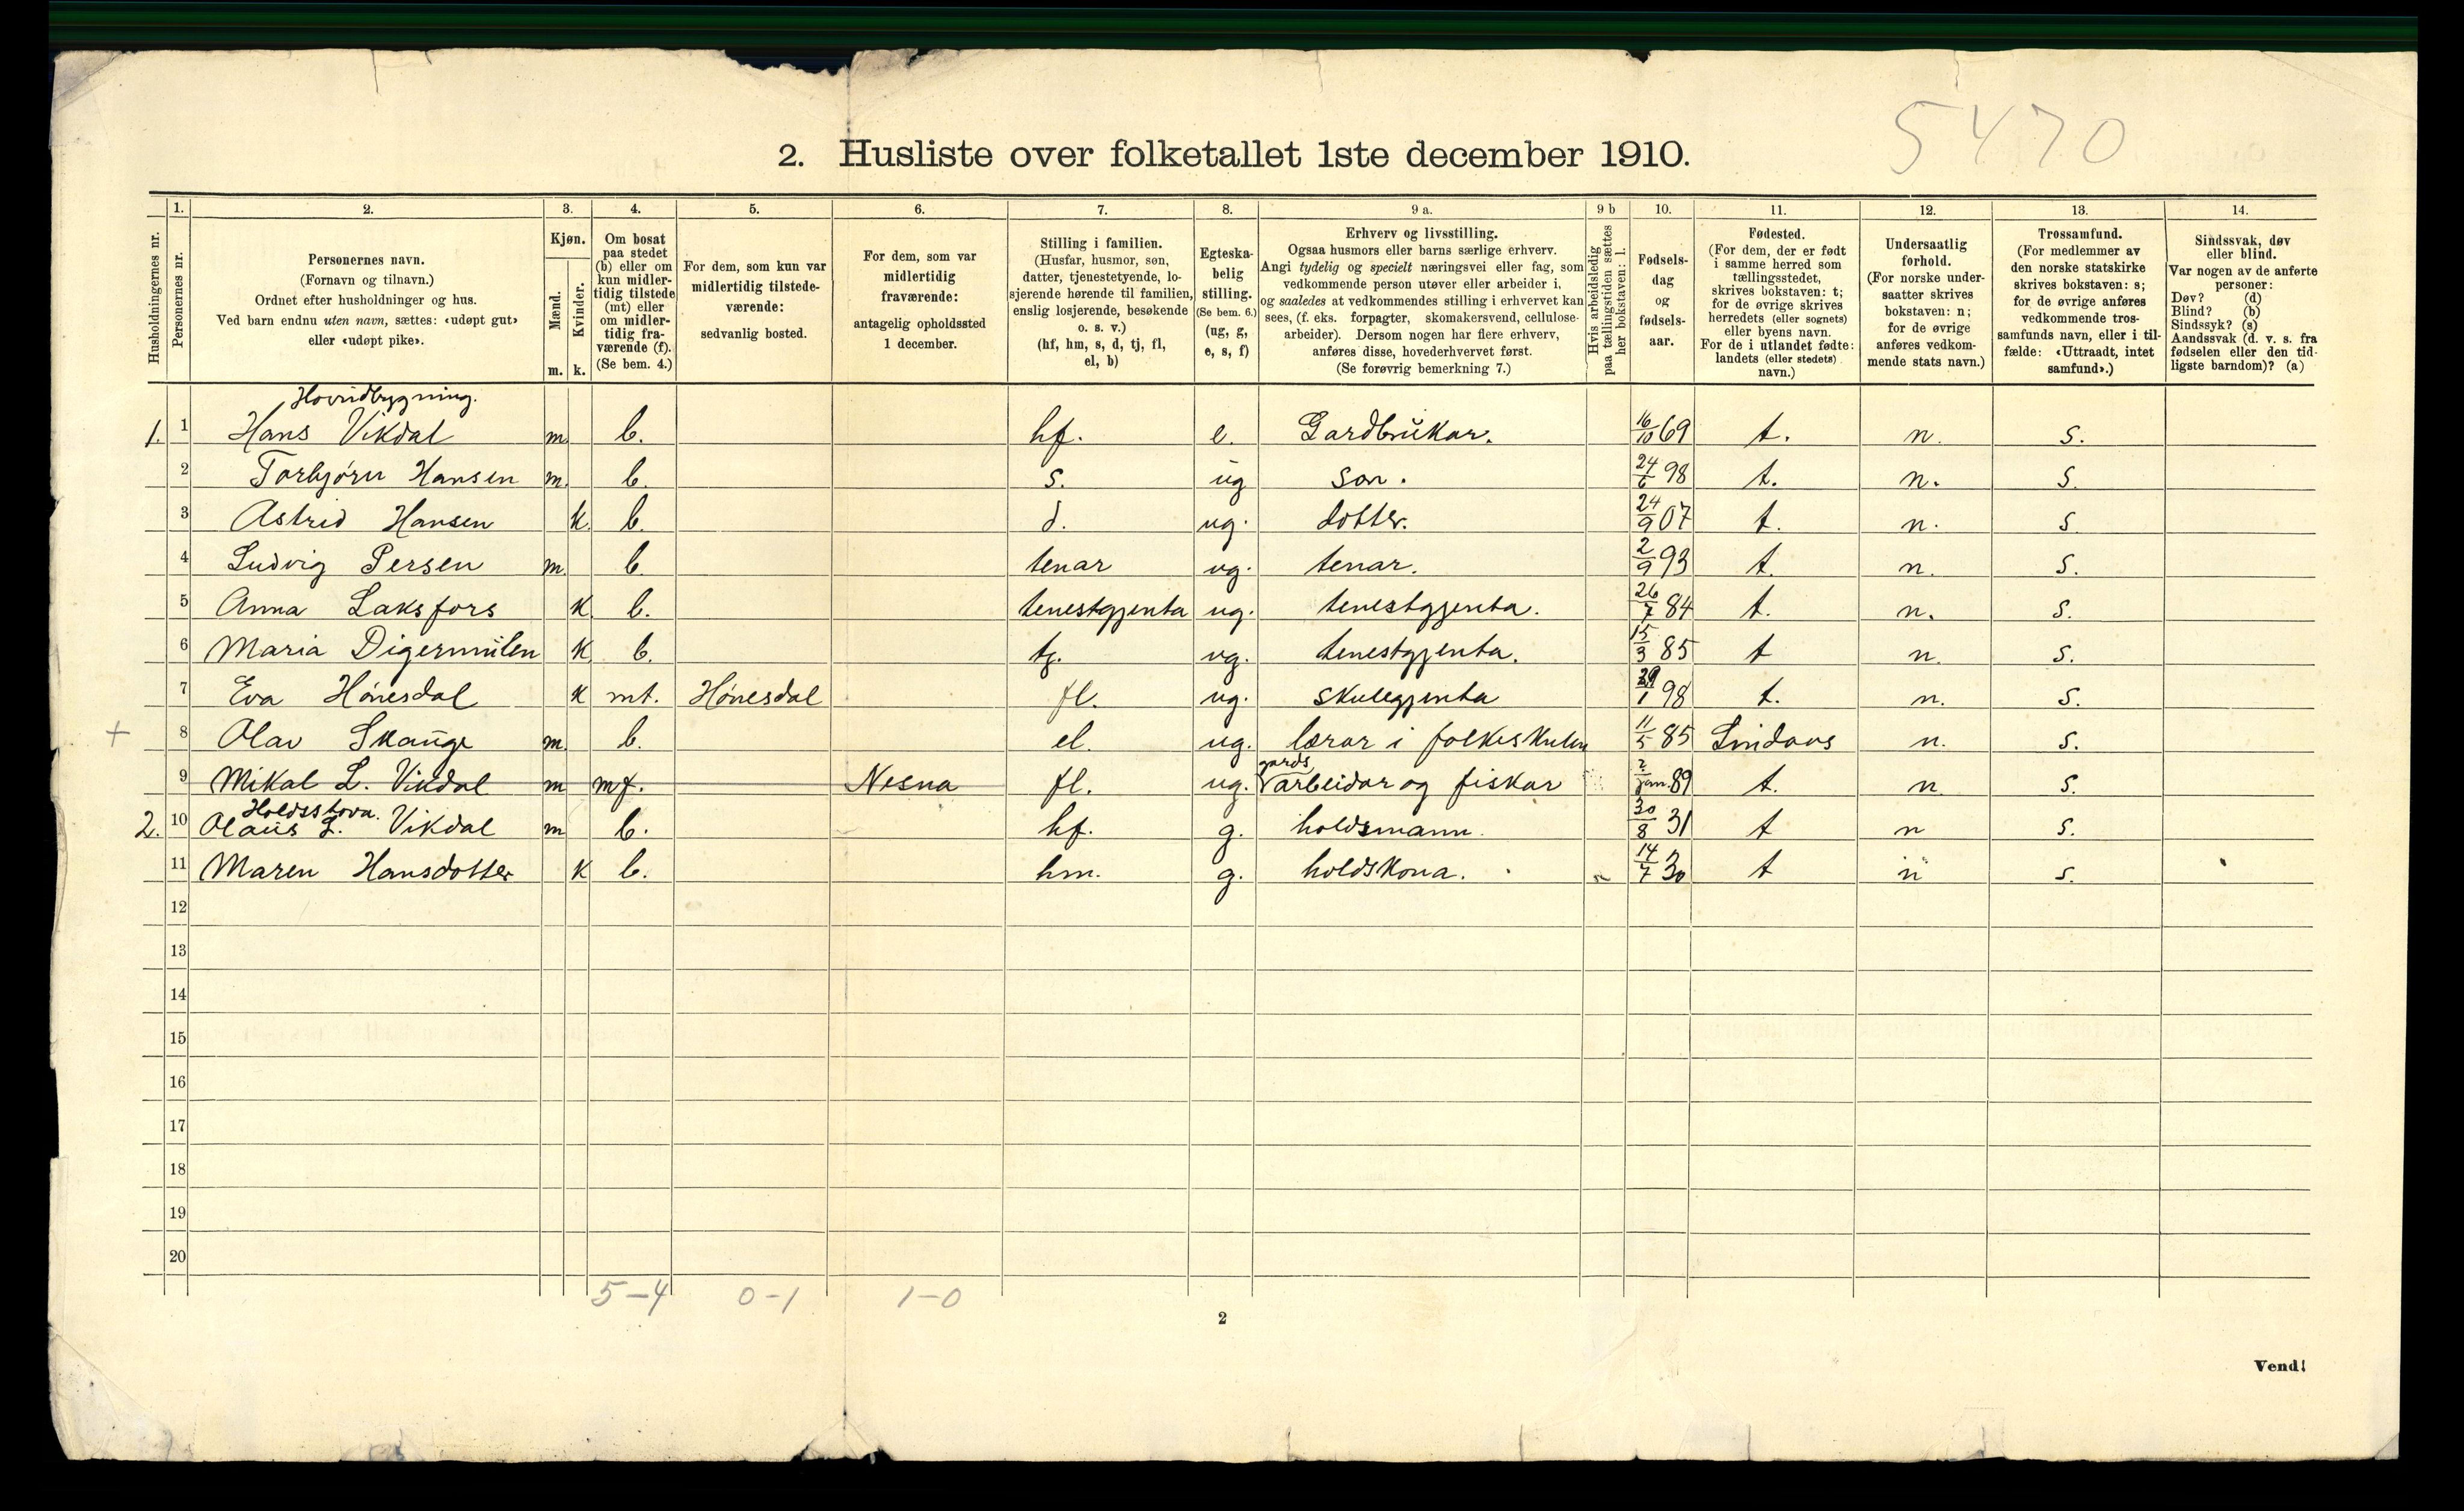 5470
2. Husliste over folketallet 1ste december 1910.
Husholdningernes nr.
1.
Personernes nr.
2.
Personernes navn.
(Fornavn og tilnavn.)
Ordnet efter husholdninger og hus.
Ved barn endnu uten navn, sættes: «udøpt gut»
eller «udøpt pike».
3.
Kjøn.
Mænd.
Kvinder.
m. k.
4.
Om bosat
paa stedet
(b) eller om
kun midler-
tidig tilstede
(mt) eller
om midler-
tidig fra-
værende (f).
(Se bem. 4.)
5.
For dem, som kun var
midlertidig tilstede-
værende:
sedvanlig bosted.
6.
For dem, som var
midlertidig
fraværende:
antagelig opholdssted
1 december.
7.
Stilling i familien.
(Husfar, husmor, søn,
datter, tjenestetyende, lo-
sjerende hørende til familien,
enslig losjerende, besøkende
o. s. v.)
(hf, hm, s, d, tj, fl,
el, b)
8.
Egteska-
belig
stilling.
(Se bem. 6.)
(ug, g,
e, s, f)
9 a.
Erhverv og livsstilling.
Ogsaa husmors eller barns særlige erhverv.
Angi tydelig og specielt næringsvei eller fag, som
vedkommende person utøver eller arbeider i,
og saaledes at vedkommendes stilling i erhvervet kan
sees, (f. eks. forpagter, skomakersvend, cellulose-
arbeider). Dersom nogen har flere erhverv,
anføres disse, hovederhvervet først.
(Se forøvrig bemerkning 7.)
9 b
Hvis arbeidsledig
paa tællingstiden sættes
her bokstaven: l.
10.
Fødsels-
dag
og
fødsels-
aar.
11.
Fødested.
(For dem, der er født
i samme herred som
tællingsstedet,
skrives bokstaven: t;
for de øvrige skrives
herredets (eller sognets)
eller byens navn.
For de i utlandet fødte:
landets (eller stedets)
navn.)
12.
Undersaatlig
forhold.
(For norske under-
saatter skrives
bokstaven: n;
for de øvrige
anføres vedkom-
mende stats navn.)
13.
Trossamfund.
(For medlemmer av
den norske statskirke
skrives bokstaven: s;
for de øvrige anføres
vedkommende tros-
samfunds navn, eller i til-
fælde: «Uttraadt, intet
samfund».)
14.
Sindssvak, døv
eller blind.
Var nogen av de anførte
personer:
Døv? (d)
Blind? (b)
Sindssyk? (s)
Aandssvak (d. v. s. fra
fødselen eller den tid-
ligste barndom)? (a)
Hovudbygning.
1. 1 Hans Vikdal m. b. hf. e. Gardbrukar. 16/10 69 t. n. s.
2 Torbjørn Hansen m. b. s. ug son. 24/6 98 t. n. s.
3 Astrid Hansen k. b. d. ug. dotter. 24/9 07 t. n. s.
4 Ludvig Persen m. b. tenar ug. tenar. 2/9 93 t. n. s.
5 Anna Laksfors k. b. tenestgjenta ug. tenestgjenta. 26/7 84 t. n. s.
6 Maria Digermulen k b. tj. ug. tenestgjenta. 15/3 85 t n. s.
7 Eva Hónesdal k mt. Hónesdal fl. ug. skulegjenta 29/1 98 t. n. s.
+ 8 Olav Skauge m. b. el. ug. lærar i folkeskulen 11/5 85 Lindaas n. s.
gards
9 Mikal L. Vikdal m mf. Nesna fl. ug. Varbeidar og fiskar 2/jan. 89 t. n s.
Holdsstova.
2. 10 Olaus L. Vikdal m b. hf. g. holdsmann. 30/8 31 t n s.
11 Maren Hansdotter k b. hm. g. holdskona. 14/7 30 t n s.
12
13
14
15
16
17
18
19
20
5-4 0-1 1-0
2
Vend!